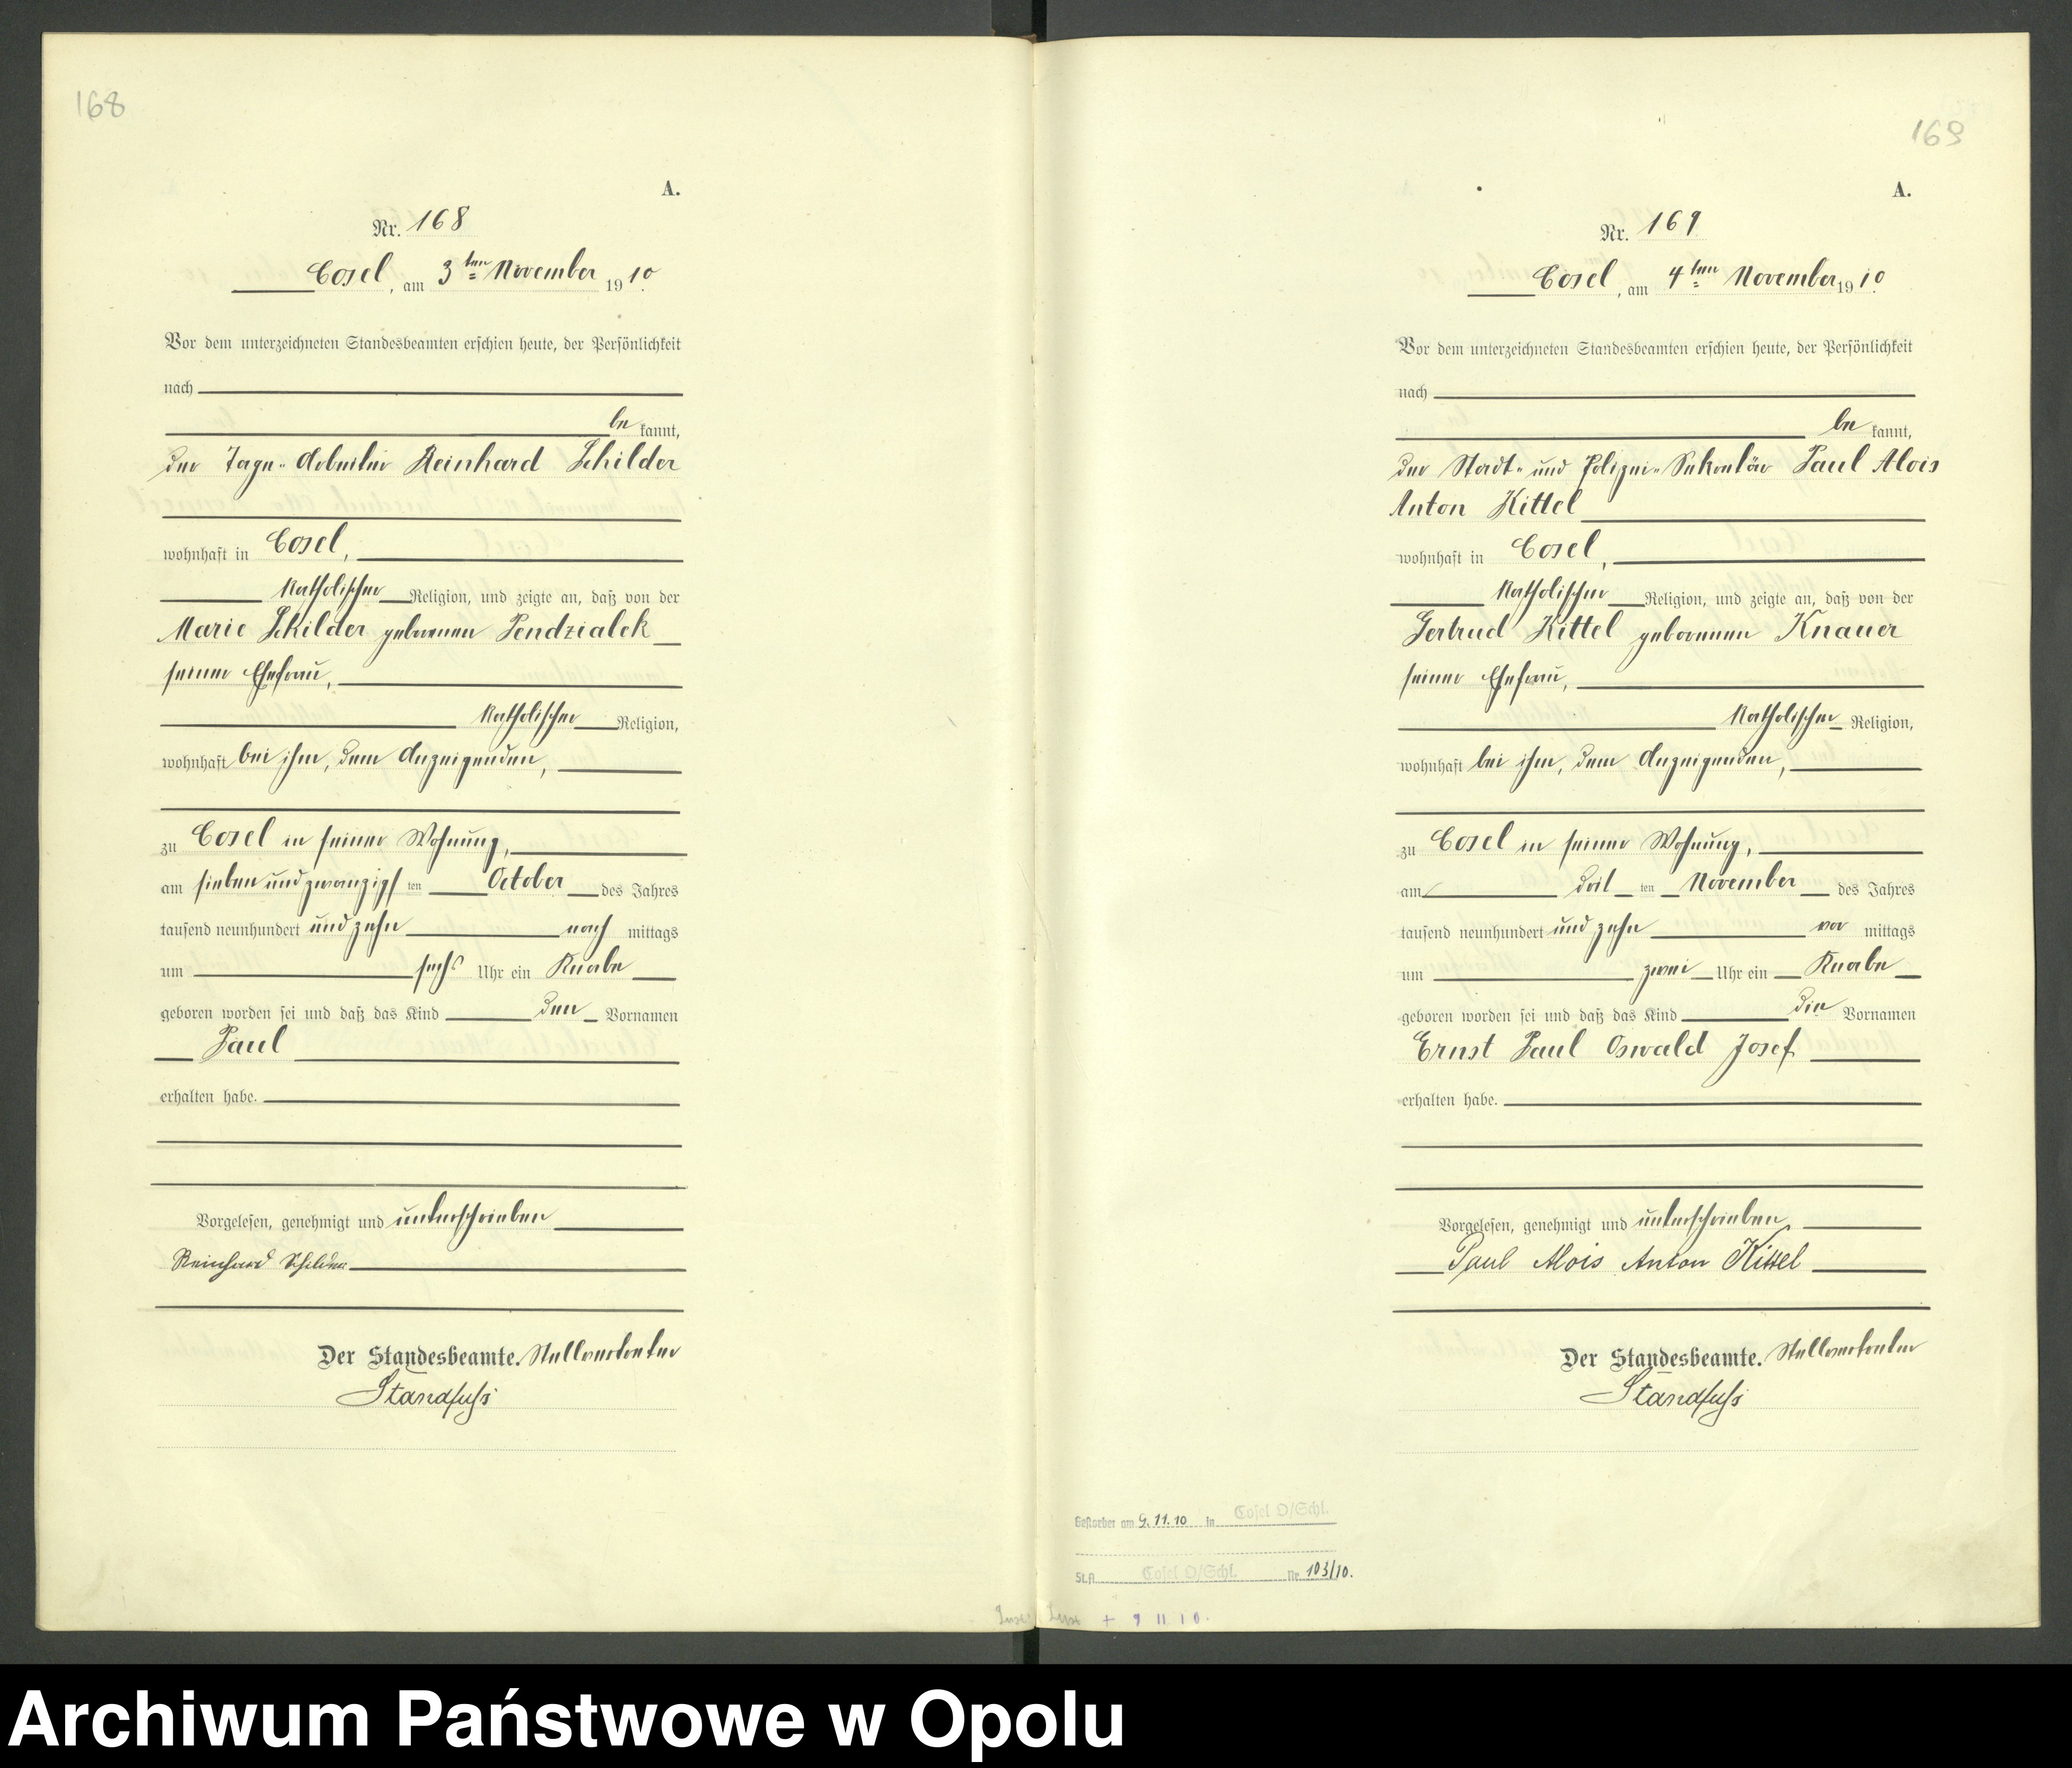 168
A.
Nr. 168
Cosel, am 3ten November 1910.
Vor dem unterzeichneten Standesbeamten erschien heute, der Persönlichkeit
nach
be kannt,
der Tage-Arbeiter Reinhard Schilder
wohnhaft in Cosel,
katholischer Religion, und zeigte an, daß von der
Marie Schilder geborenen Pendzialek
seiner Ehefrau,
katholischer Religion,
wohnhaft bei ihm, dem Anzeigenden,
zu Cosel in seiner Wohnung,
am sieben und zwanzigsten October des Jahres
tausend neunhundert und zehn nach mittags
um sechs Uhr ein Knabe
geboren worden sei und daß das Kind den Vornamen
Paul
erhalten habe.
Vorgelesen, genehmigt und unterschrieben
Reinhard Schilder
Der Standesbeamte. Stellvertreter
Standfuss
169
A.
Nr. 169
Cosel, am 4ten November 1910.
Vor dem unterzeichneten Standesbeamten erschien heute, der Persönlichkeit
nach
be kannt,
der Stadt- und Polizei-Sekretär Paul Alois
Anton Kittel
wohnhaft in Cosel,
katholischer Religion, und zeigte an, daß von der
Gertrud Kittel geborenen Knauer
seiner Ehefrau,
katholischer Religion,
wohnhaft bei ihm, dem Anzeigenden,
zu Cosel in seiner Wohnung,
am dritten November des Jahres
tausend neunhundert und zehn vor mittags
um zwei Uhr ein Knabe
geboren worden sei und daß das Kind die Vornamen
Ernst Paul Oswald Josef
erhalten habe.
Vorgelesen, genehmigt und unterschrieben
Paul Alois Anton Kittel
Der Standesbeamte. Stellvertreter
Standfuss
Gestorben am 9.11.10 in Cosel O/Schl.
St.A. Cosel O/Schl. Nr. 103/10.
+ 9 11 10.
Archiwum Państwowe w Opolu